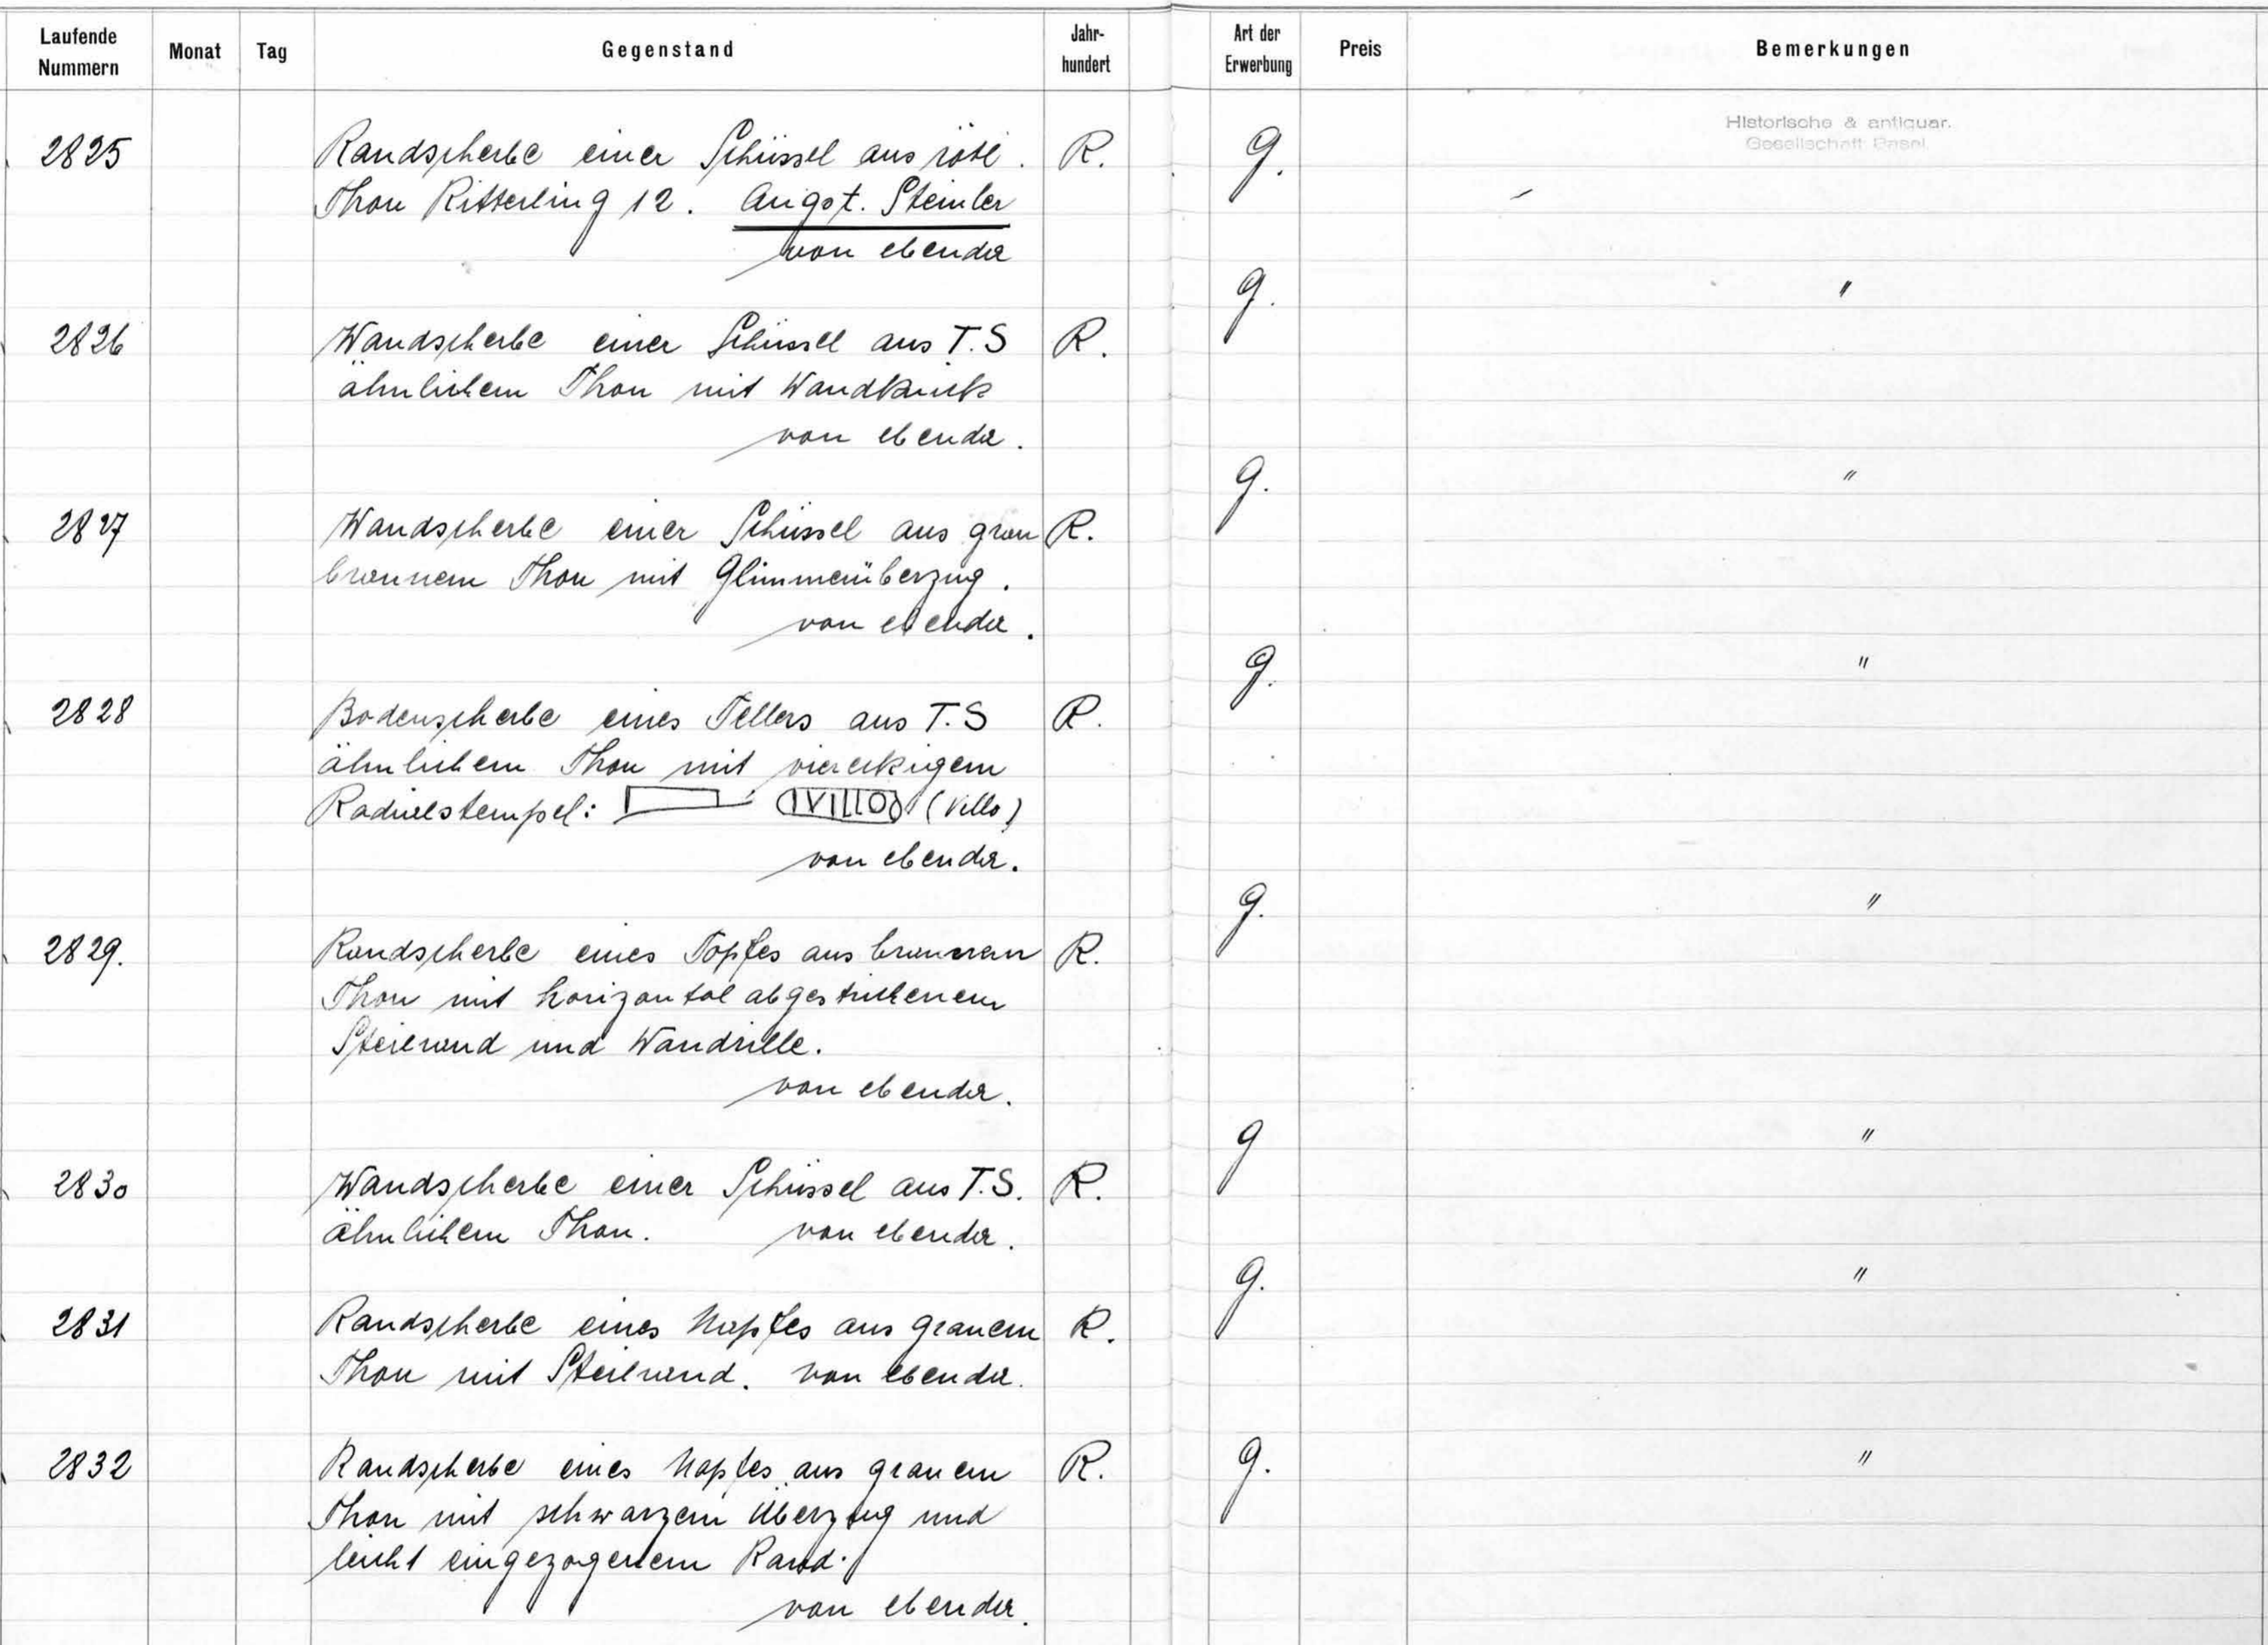 Laufende Nummern Monat Tag Gegenstand Jahr-hundert Art der Erwerbung Preis Bemerkungen
2825 Randscherbe einer Schüssel aus rötl. R. g. Historische & antiquar.
Gesellschaft Basel
Thon Ritterling 12. Augst. Steinler
von ebenda
2826 Wandscherbe einer Schüssel aus T.S R. g. "
ähnlichem Thon mit Wandknick
von ebenda.
2827 Wandscherbe einer Schüssel aus grau R. g. "
braunem Thon mit Glimmerüberzug.
von ebenda.
2828 Bodenscherbe eines Tellers aus T.S R. g. "
ähnlichem Thon mit viereckigem
Radialstempel: VILLO (Villo)
von ebenda.
2829. Randscherbe eines Topfes aus braunem R. g. "
Thon mit horizontal abgestrichenem
Steilrand und Wandrille.
von ebenda.
2830 Wandscherbe einer Schüssel aus T.S. R. g "
ähnlichem Thon. von ebenda.
2831 Randscherbe eines Napfes aus grauem R. g. "
Thon mit Steilrand. von ebenda.
2832 Randscherbe eines Napfes aus grauem R. g. "
Thon mit schwarzem Überzug und
leicht eingezogenem Rand.
von ebenda.